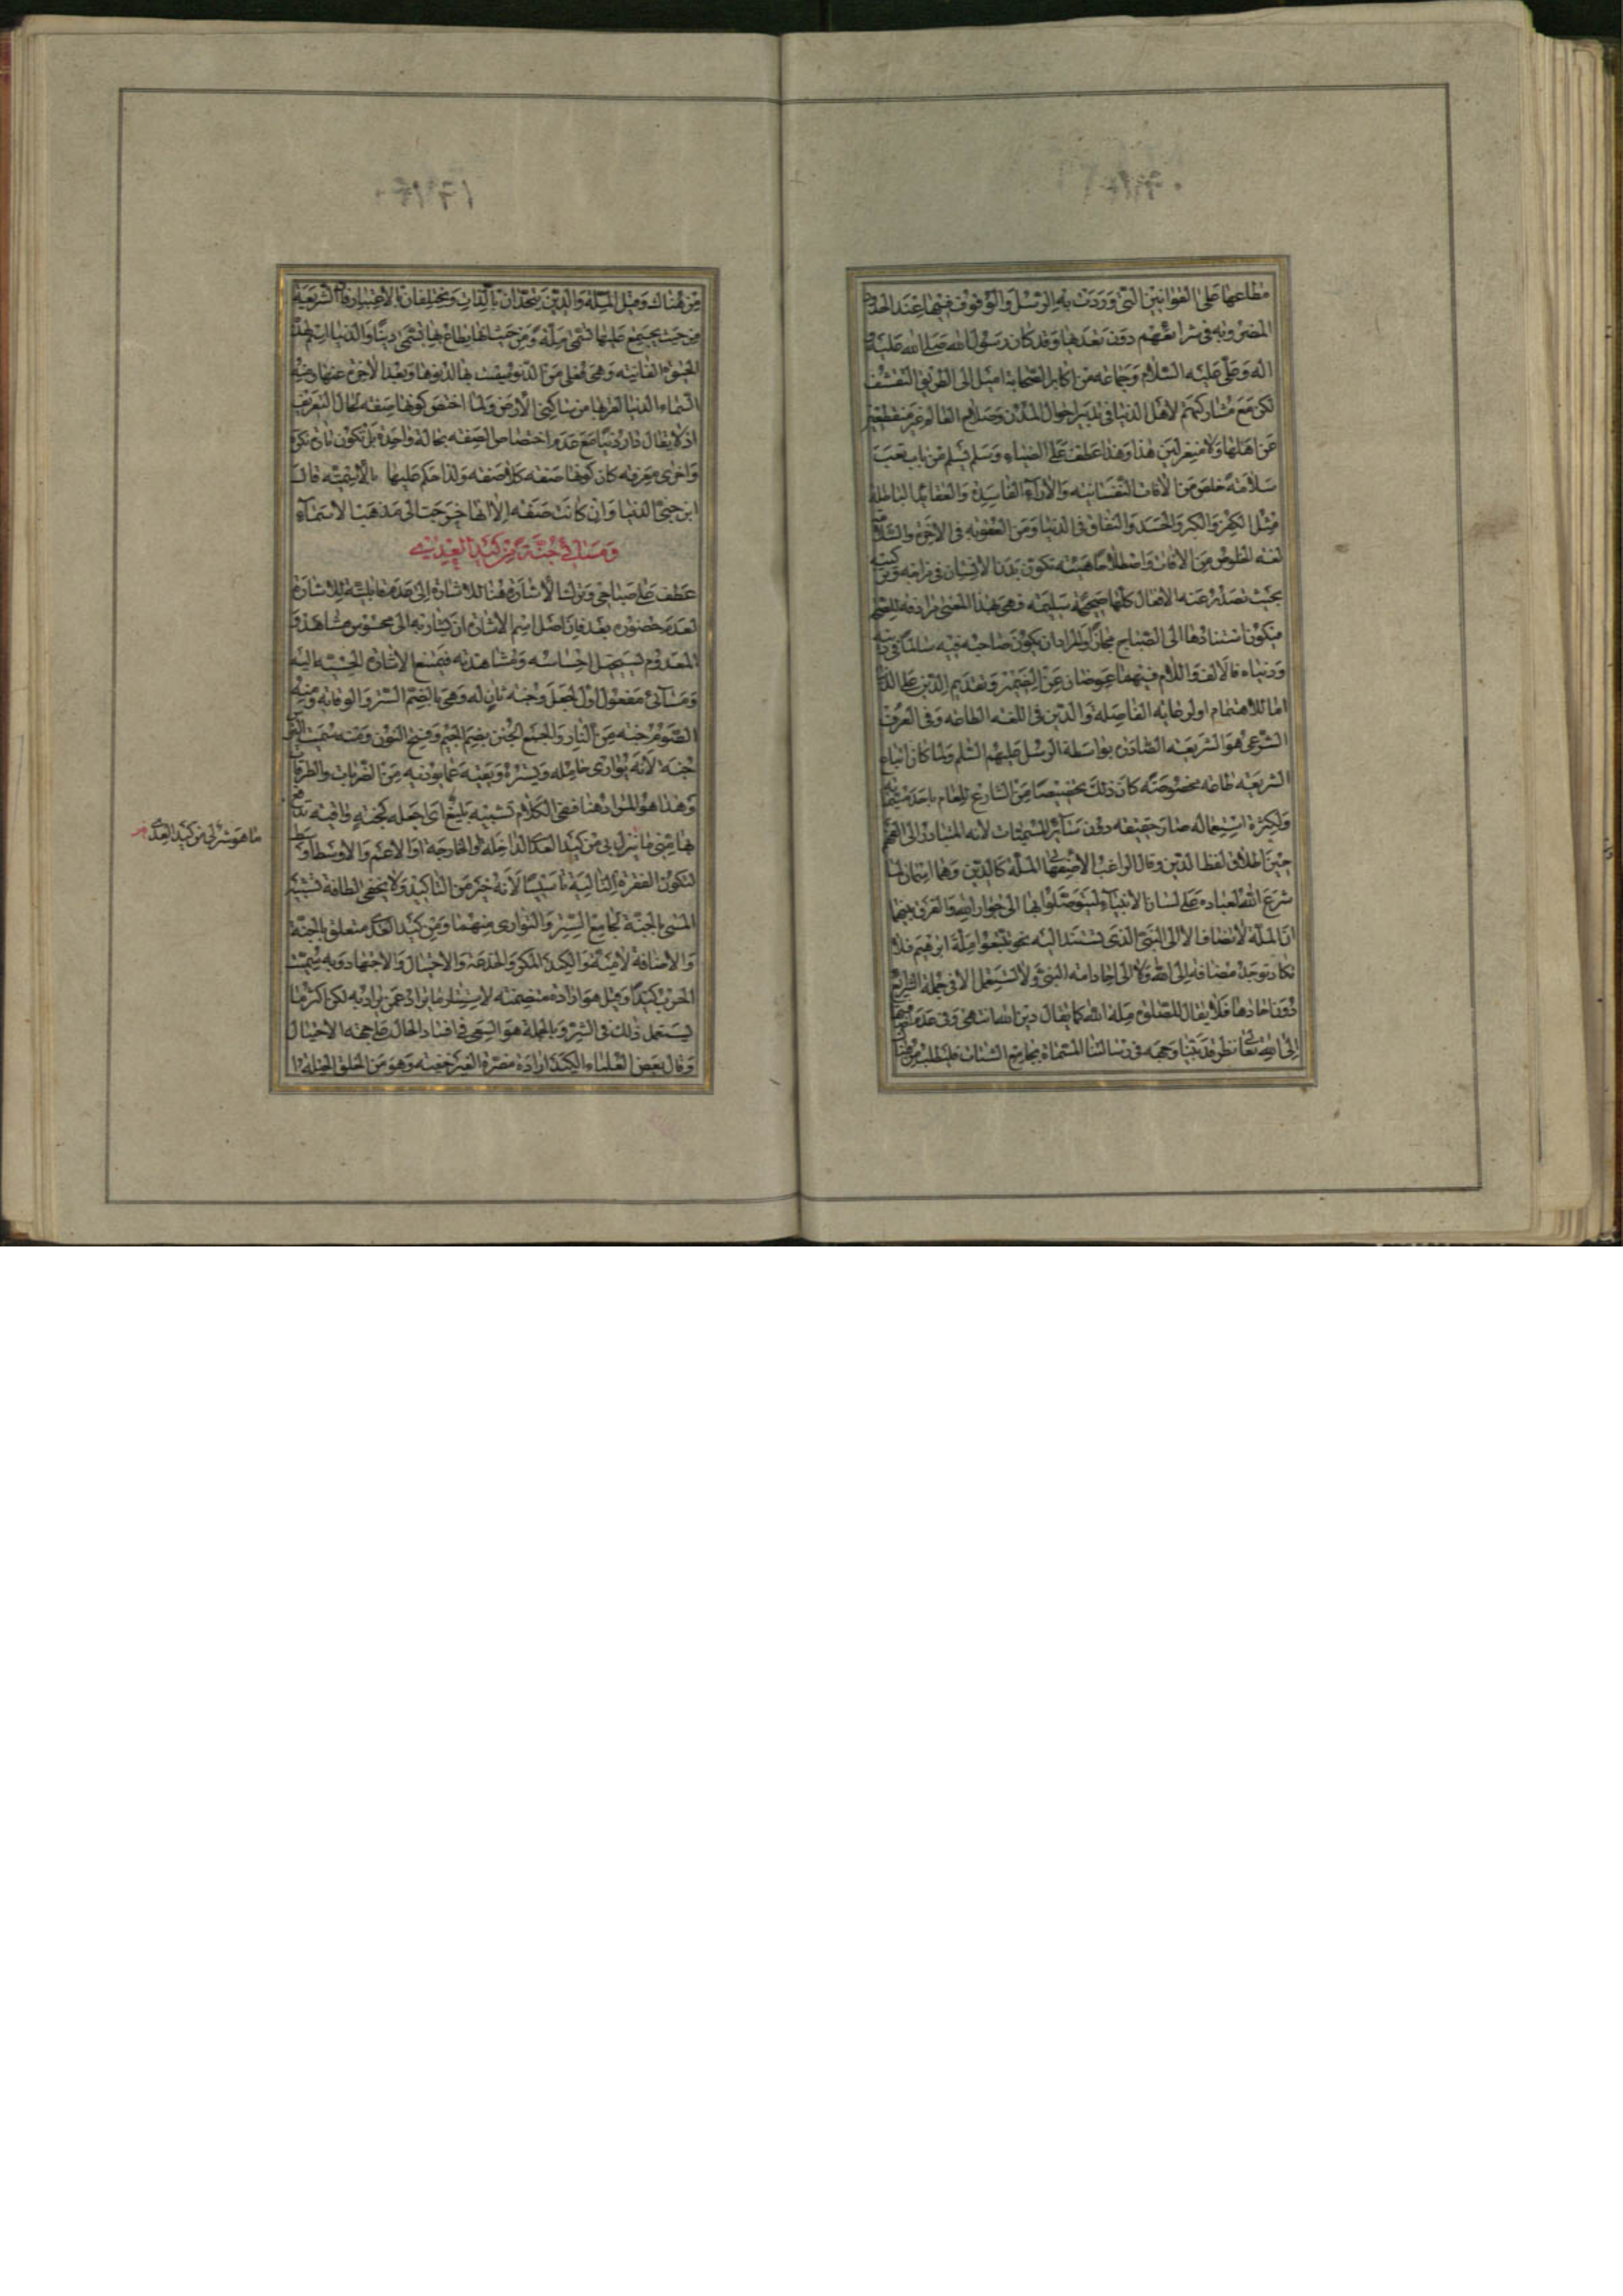 مطاعها على القوانين التى وردت به الرسل والوقوف فيها عند الحدود
المضروبة فى شرائعهم دون بعدها وقد كان رسول الله صلى الله عليه و
اله وعلى عليه السلام وجماعة من اكابر الصحابة اميل الى الطريق التقشف
لكن مع مشاركتهم لاهل الدنيا فى تدبير احوال المدن وصلاح العالم غير منقطعين
عن اهلها ولا منعزلين هذا وهذا عطف على الضياء وسلم يسلم من باب تعب
سلامة خلص من الافات النفسانية والاراء الفاسدة والعقايد الباطلة
مثل الكفر والكبر والحسد والنفاق فى الدنيا ومن العقوبة فى الاخرة والسلامة
لغة الخلوص من الافات واصطلاحا هيئة تكون بدنا الانسان فى مزاجه وتركيبه
بحيث تصدر عنه الافعال كلها صحيحة سليمة فهى بهذا المعنى مرادفة للصحة
فيكون استنادها الى الصباح مجاز والمراد ان يكون صاحبه فيه سالما فى دينه
ودنياه فالالف واللام فيهما عوضان عن الضمير وتقديم الدين على الدنيا
اما للاهتمام او لرعاية الفاصلة والدين فى اللغة الطاعة وفى العرف
الشرعى هو الشريعة الصادرة بواسطة الرسل عليهم السلم ولما كان اتباع
الشريعة طاعة مخصوصة كان ذلك تخصيصا من الشارع للعام باحد مسمياته
ولكثرة استعماله صار حقيقة دون سائر المسميات لانه المتبادر الى الفهم
حين اطلاق لفظ الدين وقال الراغب الاصفهانى الملة كالدين وهما اسمان لما
شرع الله لعباده على لسان الانبياء ليتوصلوا بها الى جوار الله والفرق بينهما
ان الملة لا تضاف الا الى النبى الذى تستند اليه نحو فاتبعوا ملة ابرهيم فلا
تكاد توجد مضافة الى الله ولا الى احاد امة النبى ولا تستعمل الا فى جملة الشرايع
دون احادها فلا يقال للصلوة ملة الله كما يقال دين الله انتهى وفى عدم اضافتها
الى الله تعالى نظر قد بينا وجهه فى رسالتنا المسماة بجامع الشتات فليطلب من هناك
من هناك وقيل الملة والدين يتحدان بالذات ويختلفان بالاعتبار فان الشريعة
من حيث يجتمع عليها تسمى ملة ومن حيث انها يطاع بها تسمى دينا والدنيا اسم لهذه
الحيوة الفانية وهى فعلى من الدنو سميت بها لدنوها وبعد الاخرة عنها ومنه
السماء الدنيا لقربها من ساكنى الارض ولما اختص كونها صفة بحال التعريف
اذ لا يقال دار دنيا مع عدم اختصاص الصفة بحالة واحدة بل تكون تارة نكرة
واخرى معرفة كان كونها صفة كلا صفة ولذا حكم عليها بالاسمية قال
ابن جنى الدنيا وان كانت صفة الا انها خرجت الى مذهب الاسماء
ومسائى جنة من كيد العدى
عطف على صباحى وترك الاشارة هنا للاشارة الى عدم قابليته للاشارة
لعدم حضوره بعد فان اصل اسم الاشارة ان يشار به الى محسوس مشاهد و
المعدوم يستحيل احساسه ومشاهدته فيمتنع الاشارة الحسية اليه
ومسائى مفعول اول لجعل وجنة ثان له وهى بالضم الستر والوقاية ومنه
الصوم جنة من النار والجمع الجنن بضم الجيم وفتح النون ومنه سميت الترس
جنة لانه يوارى حامله ويستره ويقيه عما يوذيه من الضربات والطرقات
وهذا هو المراد هنا ففى الكلام تشبيه بليغ اى اجعله كجنة واقية تدافع
بها عنى ما ينزل بى من كيد العدى الداخلة او الخارجة او الاعم والاوسط اوسط
لتكون الفقرة التالية تاسيسا لانه خير من التاكيد ولا يخفى لطافة تشبيه
المسى بالجنة بجامع الستر والتوارى منهما ومن كيد العدى متعلق بالجنة
والاضافة لامية والكيد المكر والخدعة والاحتيال والاجتهاد وبه سميت
الحرب كيدا وقيل هو ارادة متضمنة لاستتار ما يراد عمن يراد به لكن اكثر ما
يستعمل ذلك فى الشر وبالجملة هو السعى فى افساد الحال على جهة الاحتيال
وقال بعض العلماء الكيد ارادة مضرة الغير خفية وهو من الخلق الحيلة
ما هو شر لى من كيد العدى